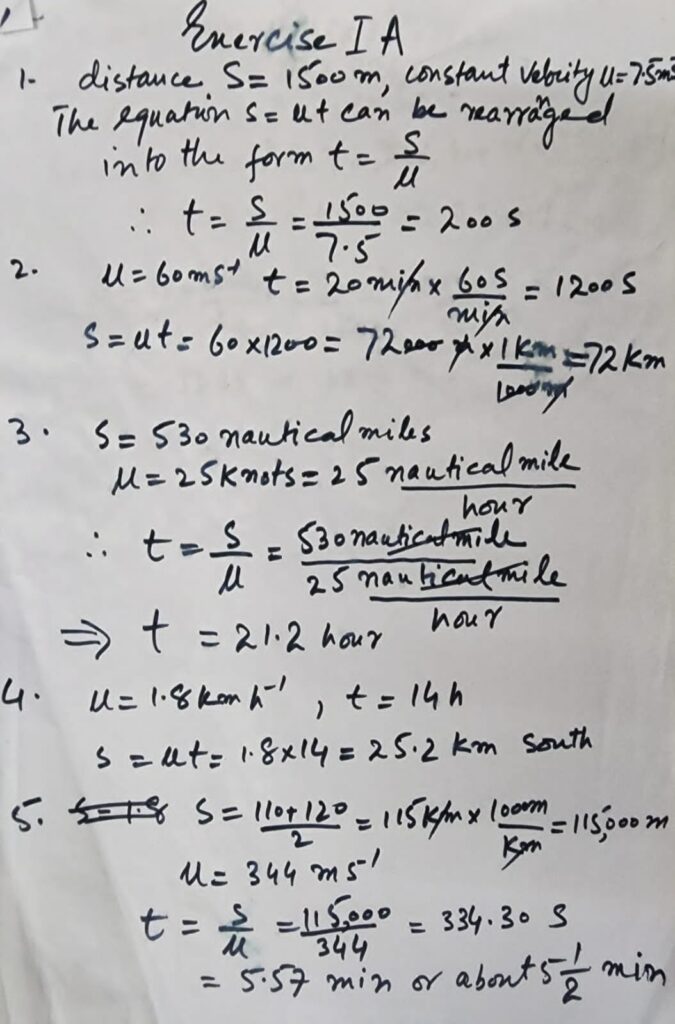 Exercise I A
1- distance, S= 1500m, constant velocity u=7.5ms
The equation s= ut can be rearranged
into the form t= S/u
∴ t= S/u = 1500/7.5 = 200 s
2. u=60ms⁻¹ t= 20 min x 60s/min = 1200 S
S=ut= 60x1200= 72000 m x 1km/1000m =72 km
3. S= 530 nautical miles
u=25Knots= 25 nautical mile/hour
∴ t= S/u = 530 nautical mile/25 nautical mile/hour
⇒ t = 21.2 hour
4. u= 1.8 km h⁻¹ , t= 14h
s =ut= 1.8x14 = 25.2 km south
5. S=1.8 S= 110+120/2 = 115 Km x 1000m/Km =115,000 m
u= 344 m s⁻¹
t = S/u = 115,000/344 = 334.30 S
= 5.57 min or about 5 1/2 min